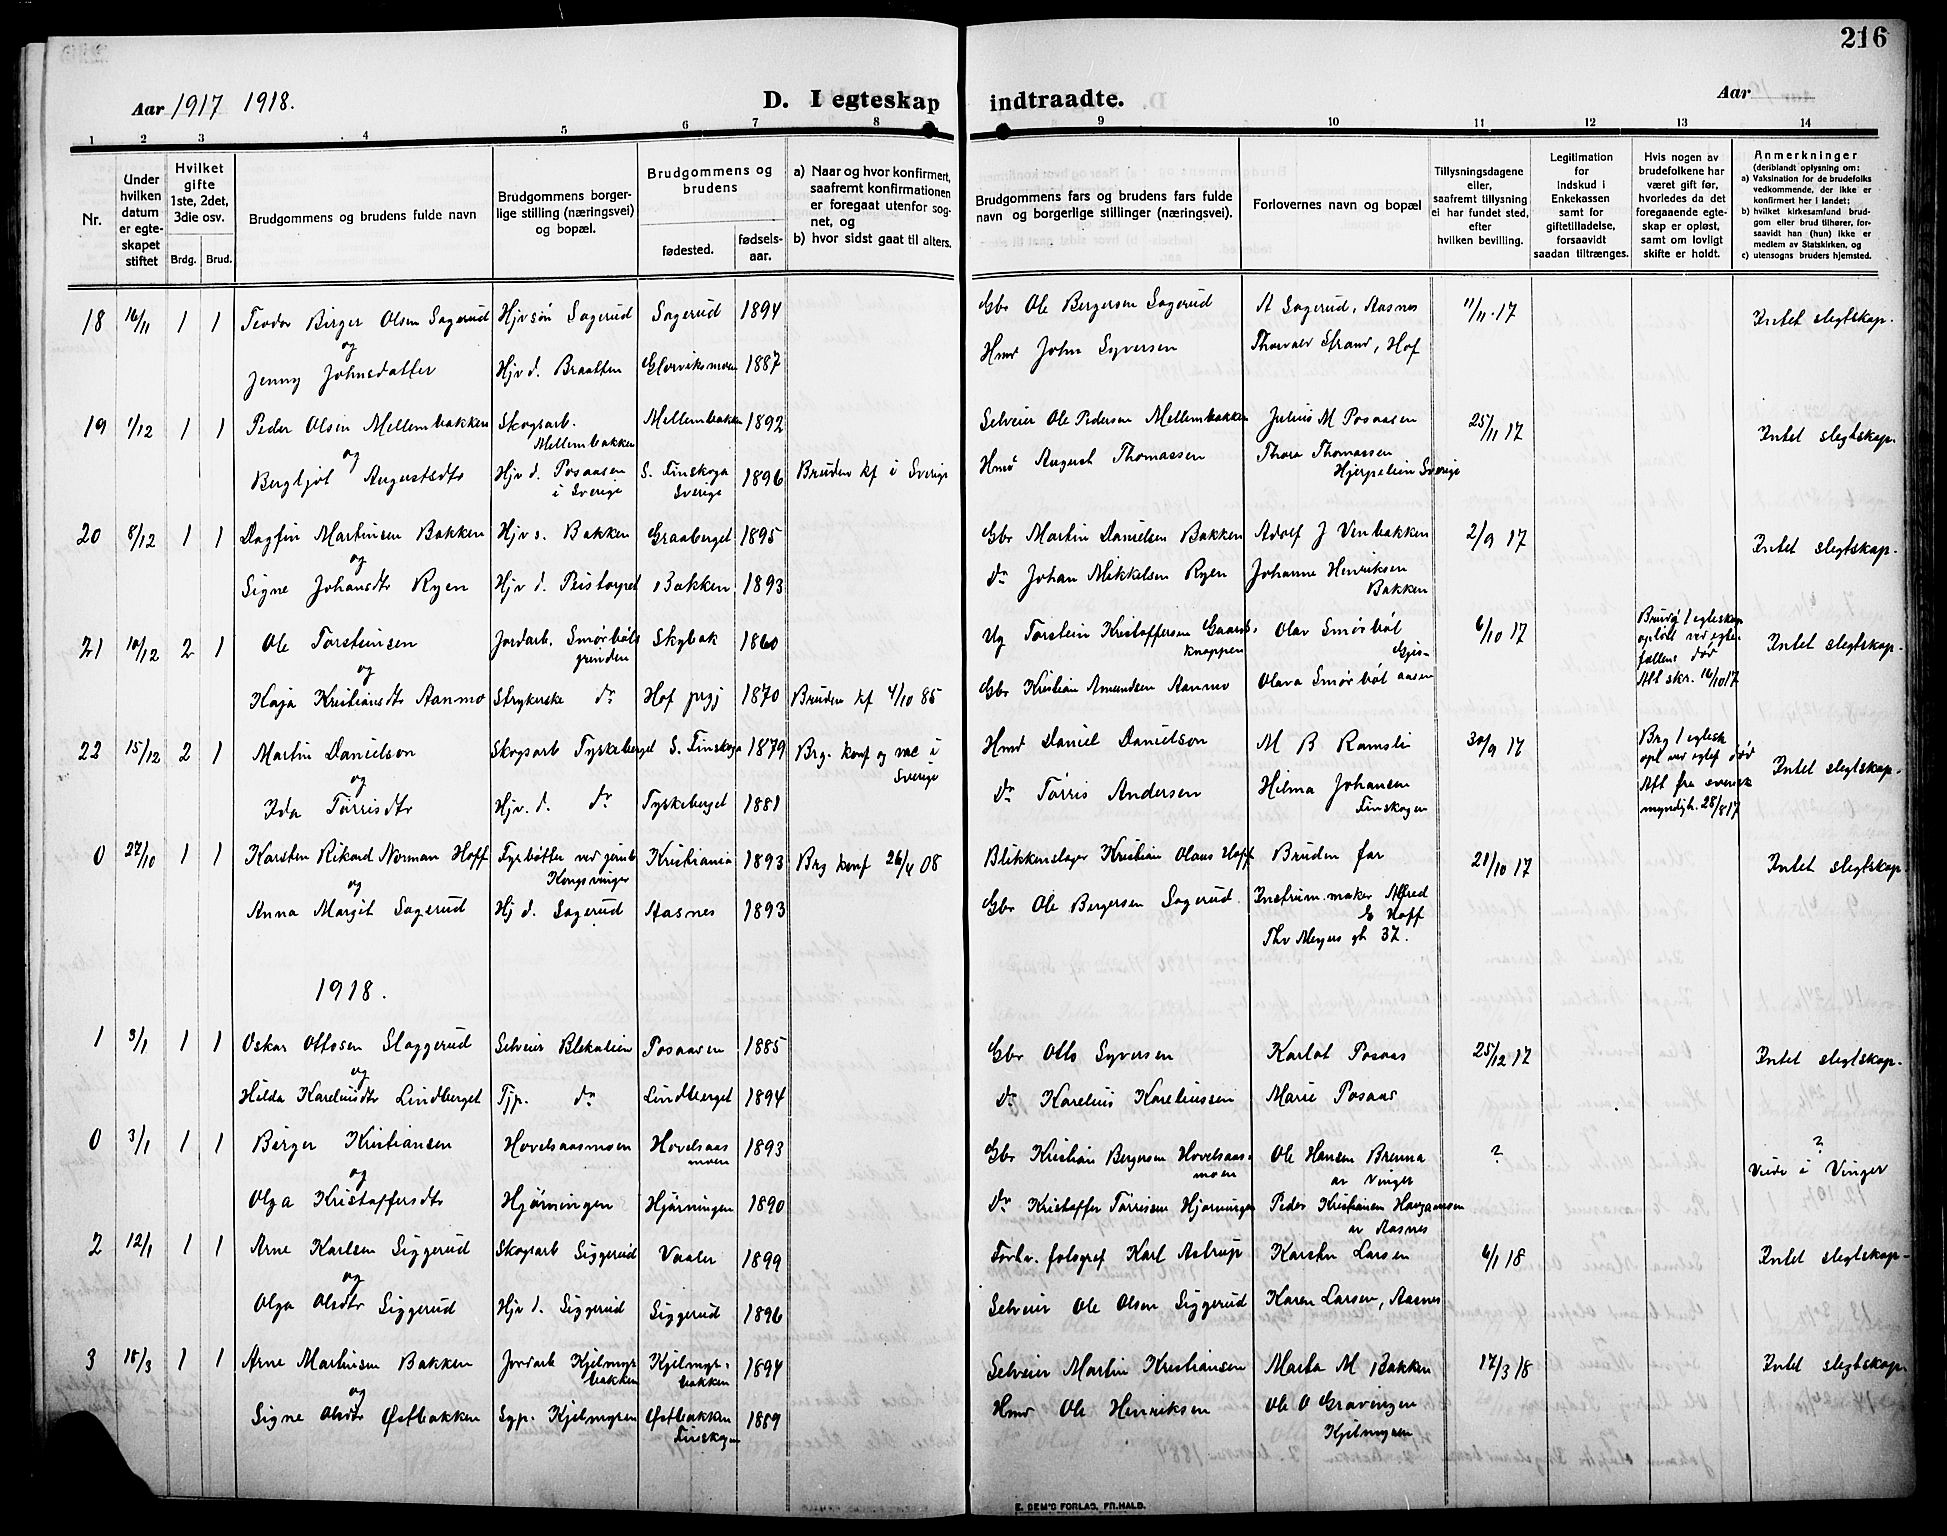 216
Aar 1917 1918.
D. I egteskap indtraadte.
Aar
1 2 3 4 5 6 7 8 9 10 11 12 13 14
Nr.
Under hvilken datum er egteskapet stiftet
Hvilket gifte 1ste, 2det, 3die osv.
Brdg. Brud.
Brudgommens og brudens fulde navn
Brudgommens borgerlige stilling (næringsvei) og bopæl.
Brudgommens og brudens
fødested. fødselsaar.
a) Naar og hvor konfirmert, saafremt konfirmationen er foregaat utenfor sognet, og
b) hvor sidst gaat til alters.
Brudgommens fars og brudens fars fulde navn og borgerlige stillinger (næringsvei).
Forlovernes navn og bopæl
Tillysningsdagene eller, saafremt tillysning ei har fundet sted, efter hvilken bevilling.
Legitimation for Indskud i Enkekassen samt for giftetilladelse, forsaavidt saadan tiltrænges.
Hvis nogen av brudefolkene har været gift før, hvorledes da det foregaaende egteskap er opløst, samt om lovligt skifte er holdt.
Anmerkninger (deriblandt oplysning om:
a) Vaksination for de brudefolks vedkommende, der ikke er konfirmert her i landet;
b) hvilket kirkesamfund brudgom eller brud tilhører, forsaavidt han (hun) ikke er medlem av Statskirken, og
c) utensogns bruders hjemsted.
18 16/11 1 1 Teodor Birger Olsen Sagerud Hjv søn Sagerud Sagerud 1894 Gbr Ole Bergersen Sagerud A Sagerud, Aasnes 11/11.17 Intet slegtskap.
og
Jenny Johnsdatter Hjv d. Braatten Glorviksmoen 1887 Hmd John Syversen Thorvald Strand, Hof
19 1/12 1 1 Peder Olsen Mellembakken Skogsarb. Mellembakken Mellembakken 1892 Selveier Ole Pedersen Mellembakken Julius M Posaasen 25/11 17 Intet slegtskap.
og
Bergljot Augustsdtr Hjv d. Posaasen i Sverige S. Finskoga Sverige 1896 Bruden kf i Sverige Hmd August Thomassen Thora Thomassen Sverige
20 8/12 1 1 Dagfin Martinsen Bakken Hjv s. Bakken Graaberget 1895 Gbr Martin Danielsen Bakken Adolf J Venbakken 2/9 17 Intet slegtskap.
og
Signe Johansdtr Ryen Hjv d. Peistorpet Bakken 1893 do Johan Mikkelsen Ryen Johanne Henriksen Bakken
21 10/12 2 1 Ole Torsteinsen Jordarb. Smørbøls grinden Skybak 1860 Ug Torstein Kristoffersen Gaardsknappen Olav Smørbøl 6/10 17 Brudg 1 egteskap opløst ved egtefællens død Intet slegtskap.
og
Kaja Kristiansdtr Aanmo Strykerske do Hof prgj 1870 Bruden kf 4/10 85 Gbr Kristian Amundsen Aanmo Olava Smørbøl Gjesaasen Att skr. 16/10 17
22 15/12 2 1 Martin Danielson Skogsarb Tyskeberget S. Finskoga 1879 Brg. konf og vac i Sverige Hmd Daniel Danielson M B Ramsli 30/9 17 Brg 1 egtesk opl ved egtef død Intet slegtskap.
og
Ida Tørrisdtr Hjv. d. do Tyskeberget 1881 do Tørris Andersen Hilma Johansen Finskogen Att fra svensk myndigh. 28/8 17
0 27/10 1 1 Karsten Rikard Norman Hoff Fyrbøtter ved jernb Kongsvinger Kristiania 1893 Brg konf 26/4 08 Blikkenslager Kristian Olaus Hoff Bruden far 21/10 17 Intet slegtskap.
og
Anna Margit Sagerud Hj d. Sagerud Aasnes 1893 Gbr Ole Bergersen Sagerud. Instrum.maker Alfred E Hoff
Thv Meyers gt 37.
1918.
1 3/1 1 1 Oskar Ottosen Slaggerud Selveier Blekalien Posaasen 1885 Gbr Otto Syversen Karlot Posaas 25/12 17 Intet slegtskap.
og
Hilda Kareliusdtr Lindberget Tjp. do Lindberget 1894 Do Karelius Kareliussen Marie Posaas
0 3/1 1 1 Birger Kristiansen Hovelsaasmoen Hovelsaasmoen 1893 Gbr Kristian Bergersen Hovelsaasmoen Ole Hansen Brenna av Vinger ? ?
Viede i Vinger
og
Olga Kristoffersdtr Hjørningen Hjørningen 1890 do Kristoffer Tørrissen Hjørningen Peder Kristiansen av Aasnes
2 12/1 1 1 Arne Karlsen Siggerud Skogsarb Siggerud Vaaler 1899 Forhv. fotograf Karl Astrup Karsten Larsen 6/1 18 Intet slegtskap.
og
Olga Olsdtr Siggerud Hjv d. Siggerud Siggerud 1896 Selveier Ole Olsen Siggerud Karen Larsen, Aasnes
3 18/3 1 1 Arne Martinsen Bakken Jordarb Kjelmyrbakken Kjelmyrbakken 1894 Selveier Martin Kristiansen Marta M Bakken 17/3 18 Intet slegtskap.
og
Signe Olsdtr Østbakken Syp. Kjelmyren Østbakken Finskogen 1889 Hmd Ole Henriksen Ole O Gravingen Kjelmyren
E. SEM'S FORLAG, FR.HALD.